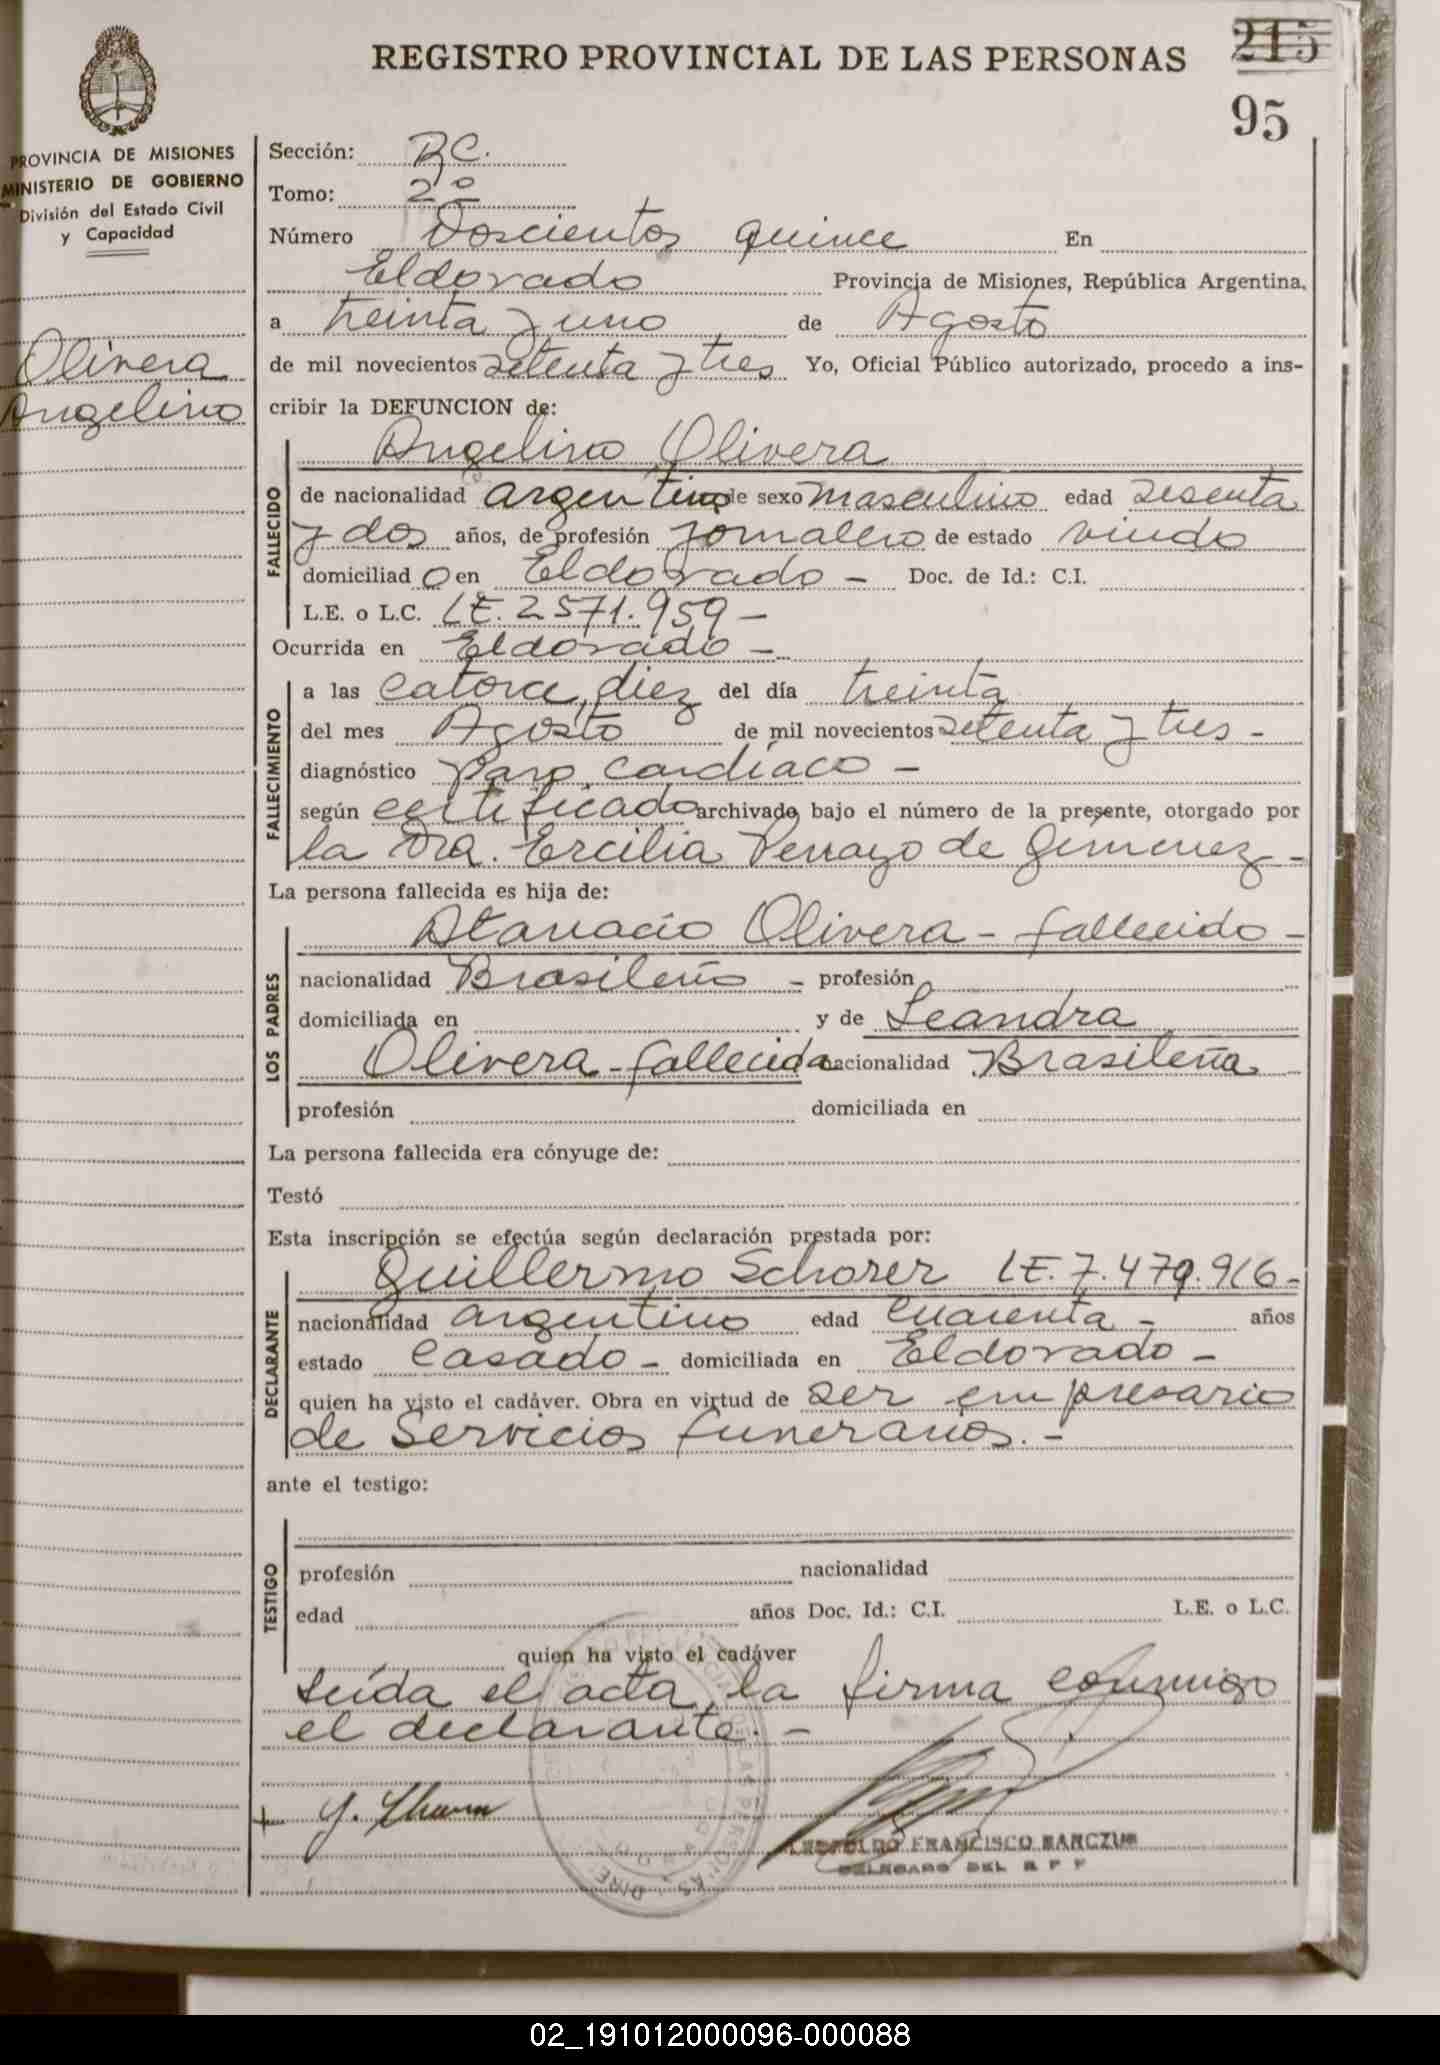 REGISTRO PROVINCIAL DE LAS PERSONAS
215
95
PROVINCIA DE MISIONES
MINISTERIO DE GOBIERNO
División del Estado Civil
y Capacidad
Olivera
Angelino
Sección: RC.
Tomo: 2º
Número Doscientos quince En
Eldorado Provincia de Misiones, República Argentina,
a treinta y uno de Agosto
de mil novecientos setenta y tres Yo, Oficial Público autorizado, procedo a ins-
cribir la DEFUNCION de:
Angelino Olivera
FALLECIDO
de nacionalidad argentino de sexo masculino edad sesenta
y dos años, de profesión jornalero de estado viudo
domiciliado en Eldorado - Doc. de Id.: C.I.
L.E. o L.C. LE. 2571.959 -
Ocurrida en Eldorado -
FALLECIMIENTO
a las catorce, diez del día treinta
del mes Agosto de mil novecientos setenta y tres -
diagnóstico Paro cardíaco -
según certificado archivado bajo el número de la presente, otorgado por
la Dra. Ercilia de Gimenez -
La persona fallecida es hija de:
LOS PADRES
Atanacio Olivera - fallecido -
nacionalidad Brasileño - profesión
domiciliada en y de Leandra
Olivera - fallecida nacionalidad Brasileña
profesión domiciliada en
La persona fallecida era cónyuge de:
Testó
Esta inscripción se efectúa según declaración prestada por:
DECLARANTE
Guillermo Schorer LE. 7.479.916 -
nacionalidad argentino edad cuarenta - años
estado Casado - domiciliada en Eldorado -
quien ha visto el cadáver. Obra en virtud de ser empresario
de Servicios funerarios. -
ante el testigo:
TESTIGO
profesión nacionalidad
edad años Doc. Id.: C.I. L.E. o L.C.
quien ha visto el cadáver
Leída el acta, la firma conmigo
el declarante. -
LEOPOLDO FRANCISCO
DELEGADO DEL R P P
02_191012000096-000088